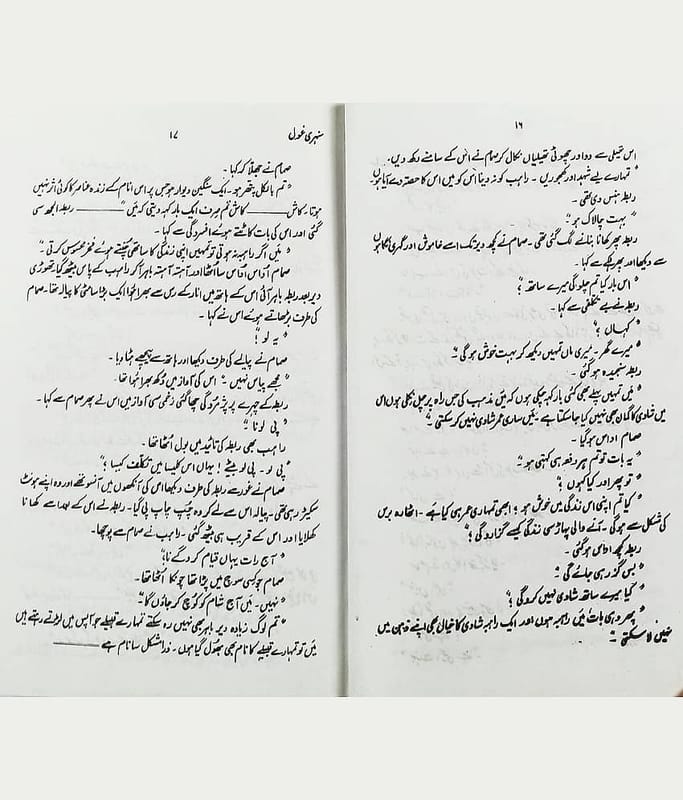 ۱۶
اس تھیلی سے دو اور چھوٹی تھیلیاں نکال کر صمام نے اس کے سامنے رکھ دیں.
" تمہارے لیے شہد اور کھجوریں۔ راہب کو نہ دینا اس کو میں اس کا حصہ دے آیا ہوں
ربطہ ہنس دی تھی ۔
" بہت چالاک ہو "
ربطہ پھر کھانا بنانے لگ گئی تھی ۔ صمام نے کچھ دیر تک اسے خاموش اور گہری نگاہوں
سے دیکھا اور پھر چپکے سے کہا ۔
" اس بار کیا تم چلو گی میرے ساتھ "؟
ربطہ نے بے تکلفی سے کہا ۔
" کہاں "؟
" میرے گھر ۔ میری ماں تمہیں دیکھ کر بہت خوش ہو گی "۔
ربطہ سنجیدہ ہو گئی ۔
" میں تمہیں پہلے بھی کئی بار کہہ چکی ہوں کہ میں مذہب کی جس راہ پر چل نکلی ہوں اس
میں شادی کا گمان بھی نہیں کیا جا سکتا ہے ۔ میں ساری عمر شادی نہیں کر سکتی "۔
صمام اداس ہو گیا ۔
" یہ بات تو تم ہر دفعہ ہی کہتی ہو "
" تو پھر اور کیا کہوں "؟
" کیا تم اپنی اس زندگی میں خوش ہو ؟ ابھی تمہاری عمر ہی کیا ہے ۔ اٹھارہ برس
کی مشکل سے ہو گی ۔ آنے والی پہاڑ سی زندگی کیسے گزارو گی "؟
ربطہ کچھ اداس ہو گئی ۔
" بس گزر ہی جائے گی "
" کیا میرے ساتھ شادی نہیں کرو گی "؟
" پھر وہی بات میں راہبہ ہوں اور ایک راہبہ شادی کا خیال بھی اپنے ذہن میں
نہیں لا سکتی "۔
سنہری غول ۱۷
صمام نے جھلا کر کہا ۔
" تم بالکل پتھر ہو ۔ ایک سنگین دیوار ہو جس پر اس انام کے زندہ عناصر کا کوئی اثر نہیں
ہوتا ۔ کاش ——— کاش تم صرف ایک بار کہہ دیتی کہ میں " ——— ربطہ الجھ سی
گئی اور اس کی بات کاٹتے ہوئے افسردگی سے کہا ۔
" میں اگر راہبہ نہ ہوتی تو تمہیں اپنی زندگی کا ساتھی چنتے ہوئے فخر محسوس کرتی "
صمام اداس اداس سا اٹھا اور آہستہ آہستہ باہر آ کر راہب کے پاس بیٹھ گیا ۔ تھوڑی
دیر بعد ربطہ باہر آئی اس کے ہاتھ میں انار کے رس سے بھرا ہوا ایک بڑا سا مٹی کا پیالہ تھا ۔ صمام
کی طرف بڑھاتے ہوئے اس نے کہا ۔
" یہ لو "؟
صمام نے پیالے کی طرف دیکھا اور ہاتھ سے پیچھے ہٹا دیا ۔
" مجھے پیاس نہیں "۔ اس کی آواز میں دکھ بھرا ہوا تھا ۔
ربطہ کے چہرے پر پژمردگی چھا گئی زخمی سی آواز میں اس نے پھر صمام سے کہا ۔
" پی لو نا "؟
راہب بھی ربطہ کی تائید میں بول اٹھا تھا ۔
" پی لو ۔ پی لو بیٹے ! یہاں اس کلیسا میں تکلف کیسا "؟
صمام نے غور سے ربطہ کی طرف دیکھا اس کی آنکھوں میں آنسو تھے اور وہ اپنے ہونٹ
سکیڑ رہی تھی ۔ پیالہ اس سے لے کر وہ چپ چاپ پی گیا ۔ ربطہ نے اس کے بعد اسے کھانا
کھلایا اور اس کے قریب ہی بیٹھ گئی ۔ راہب نے صمام سے پوچھا ۔
" آج رات یہاں قیام کرو گے نا "؟
صمام جو کسی سوچ میں پڑا تھا چونکا اٹھا تھا ۔
" نہیں ۔ میں آج شام کو کوچ کر جاؤں گا "۔
" تم لوگ زیادہ دیر باہر بھی نہیں رہ سکتے تمہارے قبیلے جو آپس میں لڑتے رہتے ہیں
میں تو تمہارے قبیلے کا نام بھی بھول گیا ہوں ۔ ذرا مشکل سا نام ہے ———